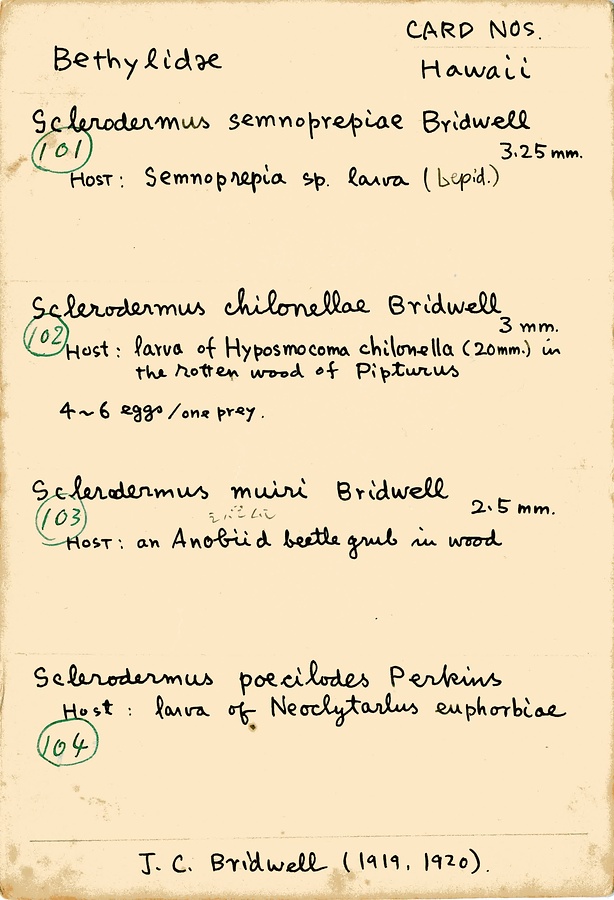 CARD NOS.
Bethylidae Hawaii
Sclerodermus semnoprepiae Bridwell
101
3.25 mm.
Host: Semnoprepia sp. larva (Lepid.)
Sclerodermus chilonellae Bridwell
102
3 mm.
Host: larva of Hyposmocoma chilonella (20mm.) in
the rotten wood of Pipturus
4~6 eggs/one prey.
Sclerodermus muiri Bridwell
103
2.5 mm.
Host: an Anobiid beetle grub in wood
Sclerodermus poecilodes Perkins
Host: larva of Neoclytarlus euphorbiae
104
J. C. Bridwell (1919, 1920).